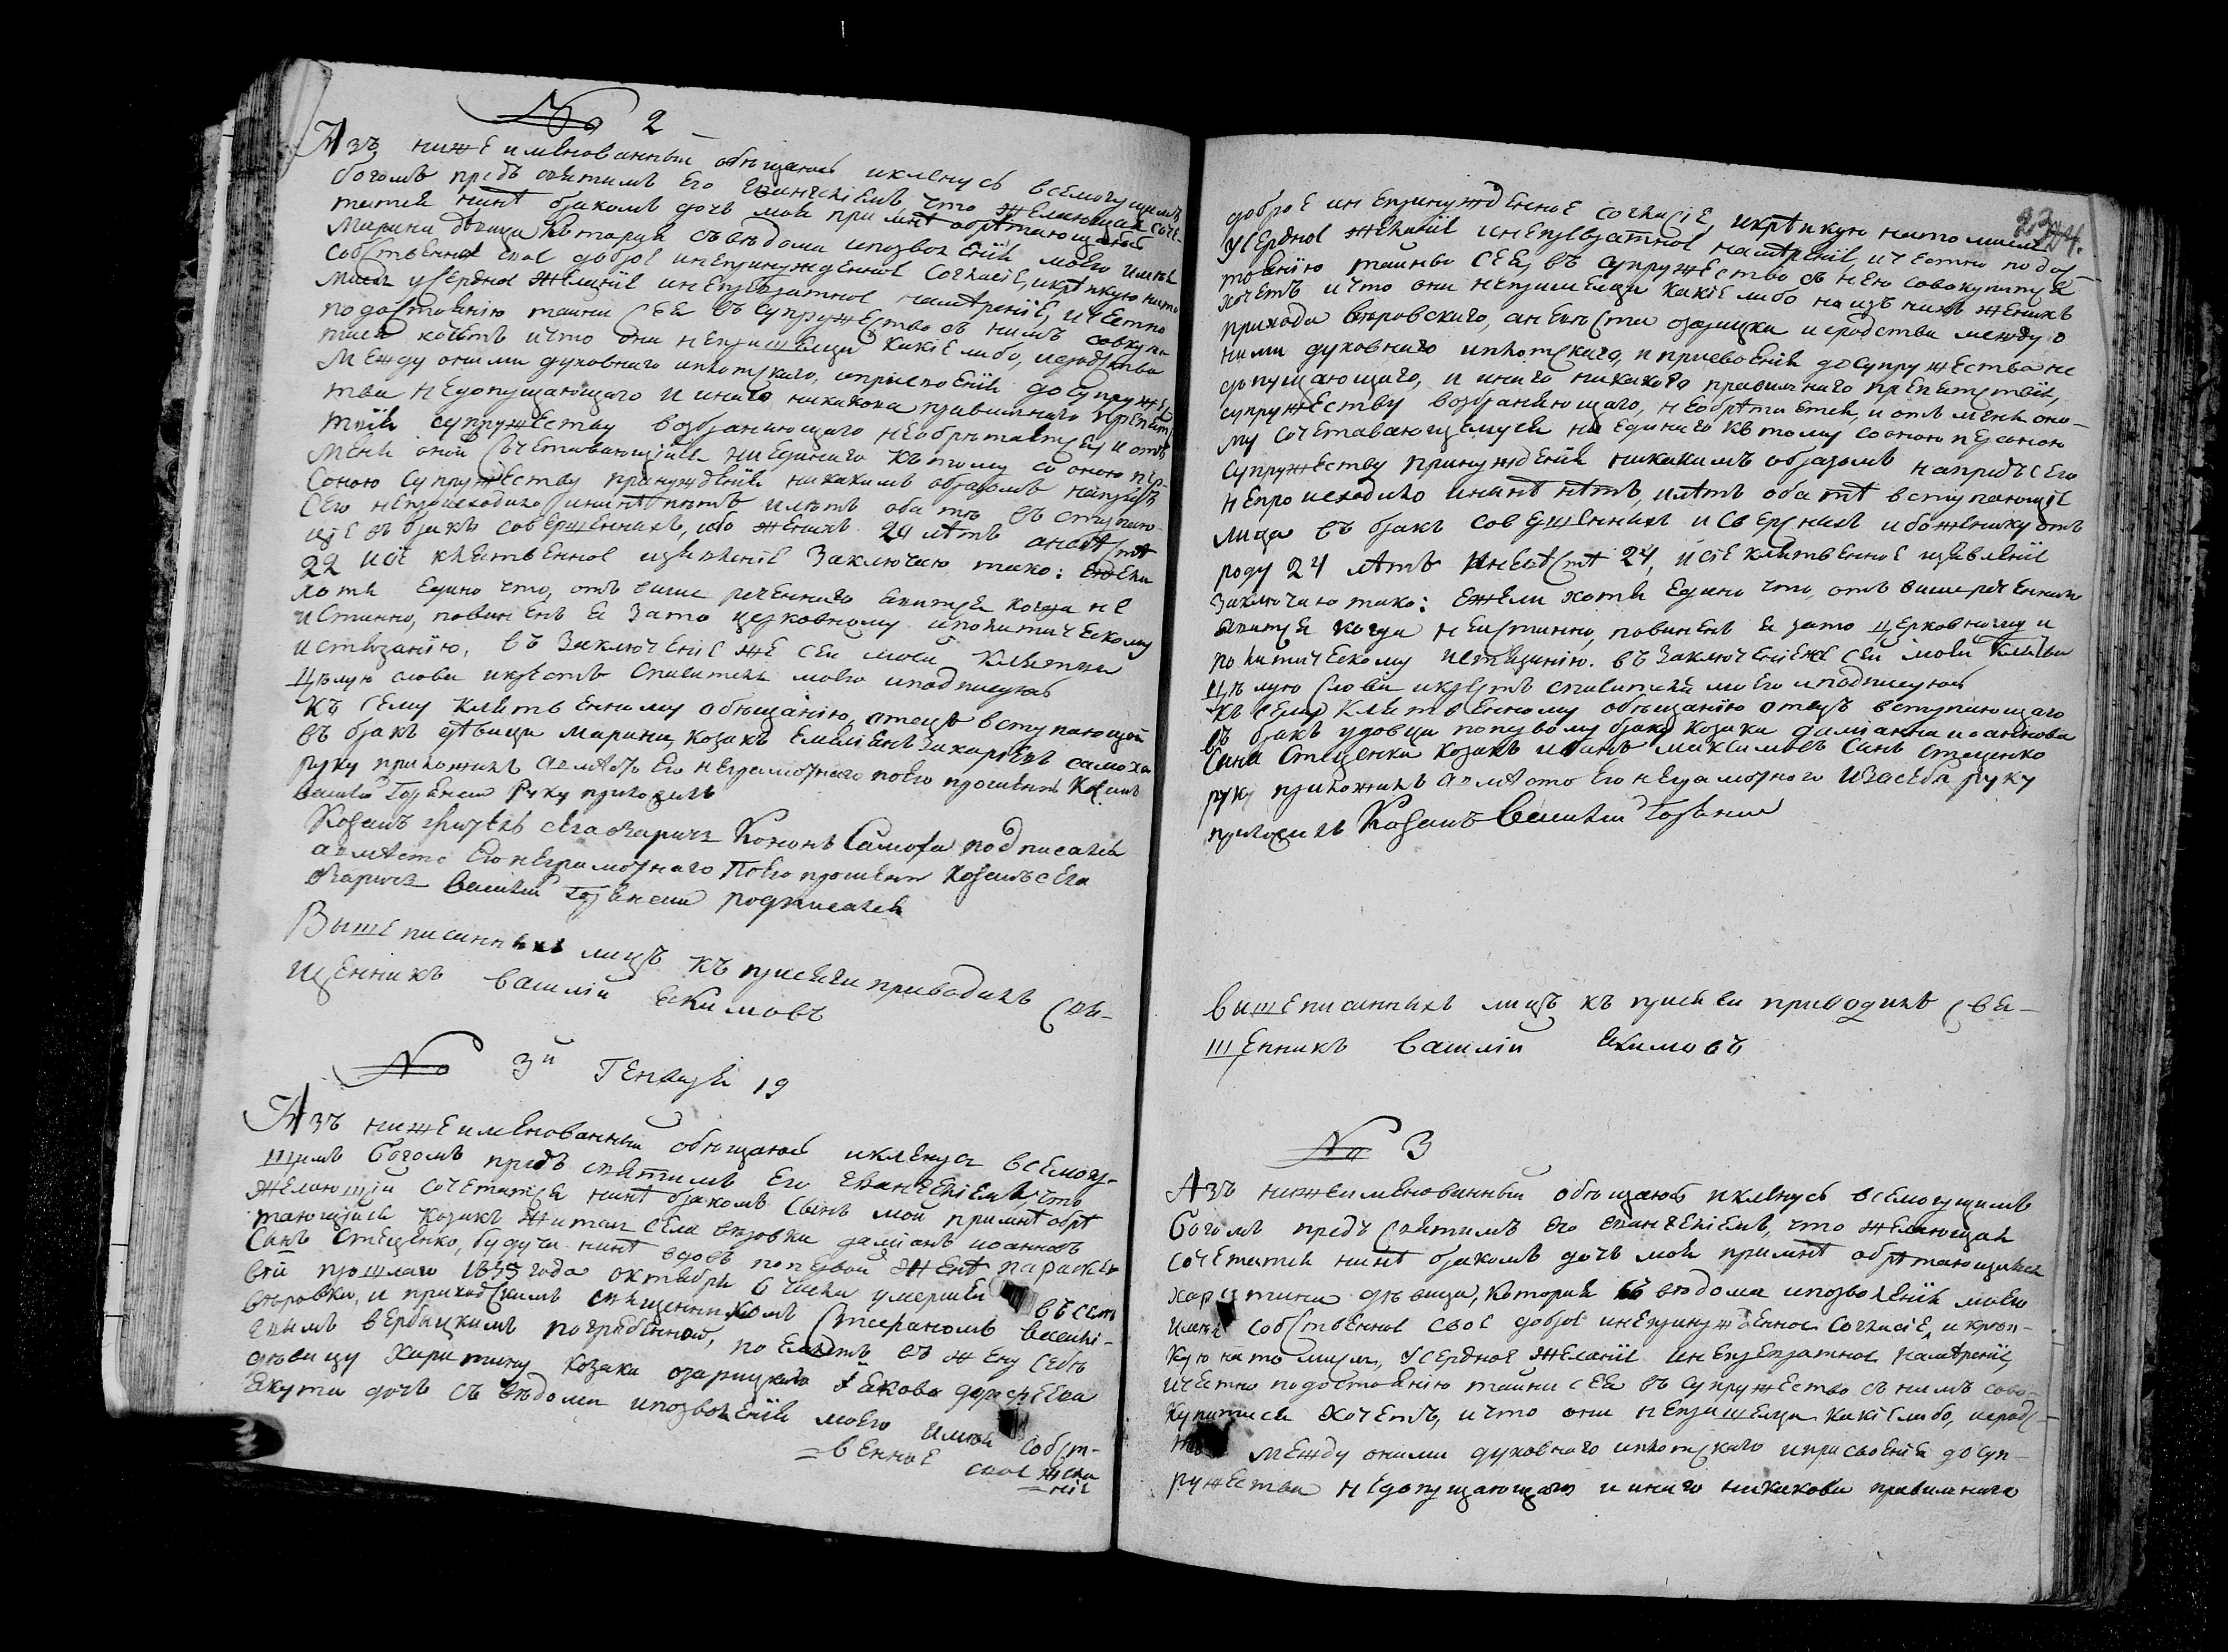 № 2
Азъ нижеименованный обѣщаюсь и кленусь всемогущимъ
богомъ предъ святимъ Его Евангеліемъ что желающая соче-
татися нинѣ бракомъ дочь моя при мнѣ обрѣтающаяся
Марина дѣвица которая съ вѣдома и позволенія моего имѣя
собственное свое доброе и непринужденное согласіе, и крѣпкую на то
мисль усердное желаніе и непревратное намѣреніе, и честно
по достоянію тайни сея въ супружество съ нимъ совокупи-
тися хочетъ и что они не пришелци какіе либо, и сродства
Между оними духовного и плотского, и присвоенія до супруже-
тва недопущающого и иного никакова правилного препят
твія супружеству возбраняющого не обрѣтается, и отъ
меня оной сочетавающійся ни единаго къ тому со оною пер-
соною супружеству принужденія никакимъ образомъ напредъ
сего непроисходило и нинѣ нѣтъ и лѣтъ оба тѣ въ ступаю-
щіе въ бракъ совершеннихъ, ибо жениху 24 лѣтъ а невѣстѣ
22 и сіе клятвенное изявленіе заключаю тако: ежели
хотя едино что, отъ више реченного явится когда не
истинно, повиненъ я за то церковному и политическому
истязанію, въ заключеніе же сей моей клятви
Цѣлую слова и крестъ спасителя моего и подписуюсь
Къ сему клятвенному обѣщанію, отецъ вступающой
въ бракъ дѣвици марини, козакъ Емиліянъ Захаріевъ самоха
руку приложилъ а вмѣсто его неграмотного по его прошенію Козакъ
василій Горбанев руку приложилъ
Козакъ села Озаричъ Кононъ Самоха подписался
а вмѣсто его неграмотнаго По его прошенію Козакъ села
Озаричъ василій Горбанев подписался
Вышеписаннихъ лицъ къ присяги приводилъ Свя-
щенникъ Василій Якимовъ
№ 3й Генваря 19
Азъ нижеименованный обѣщаюсь и кленусь всемогу-
щимъ Богомъ предъ святимъ Его Евангеліемъ, что
желающій сочетатися нинѣ бракомъ синъ мой при мнѣ обрѣ
тающійся козакъ житель села вѣровки даміанъ иоанновъ
Синъ Стеценко, будучи нинѣ вдовъ по первой женѣ параске
віи прошлаго года октября 6 числа умершей въ селѣ
вѣровки, и приходскимъ священникомъ Стефаномъ василі-
евымъ вербицкимъ погребенной, поемлетъ въ жену себѣ
дѣвицу харитину козака озарицкого Іакова
Якути дочь съ вѣдома и позволенія моего имѣя собст-
=венное свое жела
=ніе
23 24.
доброе и непринужденное согласіе, и крѣпкую на то мисль
усердное желаніе и непревратное намѣреніе, и честно по дос-
тоянію тайни сея, въ супружество съ нею совокупится
хочетъ и что они не пришелци какіе либо но изъ нихъ женихъ
прихода вѣровского, а невѣста озарицка и сродства между о
ними духовного и плотского, и присвоенія до супружества не
допущающого, и иного никакого правилного препятствія,
супружеству возбраняющого, не обрѣтается, и отъ меня оно-
му сочетавающемуся ни единаго къ тому со оною персоною
супружеству принужденія никакимъ образомъ напредъ сего
непроисходило и нинѣ нѣтъ, и лѣтъ оба тѣ вступающіе
лица въ бракъ совершеннихъ и сверснихъ ибо жениху отъ
роду 24 лѣтъ и невѣстѣ 24, и сіе клятвенное изявленіе
заключаю тако: ежели хотя едино что, отъ вишереченнихъ
явится когда неистинно, повиненъ я за то церковному и
политическому истязанію. въ заключеніе же сей моей клятви
Цѣлую слова и крестъ спасителя моего и подписуюсь
Къ сему клятвенному обѣщанію отецъ вступающаго
въ бракъ удовца по первому браку козака даміана иоаннова
сина Стеценка козакъ иоаннъ максимовъ синъ стеценко
руку приложилъ а вмѣсто его неграмотного и за себя руку
приложилъ Козакъ Василій Горбанев
вишеписаннихъ лицъ къ присяги приводилъ свя-
щенникъ Василій Якимовъ
№ 3
Азъ нижеименованный обѣщаюсь и кленусь всемогущимъ
Богомъ предъ святимъ его евангеліемъ, что желающая
сочетатися нинѣ бракомъ дочь моя при мнѣ обрѣтающаяся
харитина дѣвица, которая съ вѣдома и позволенія моего
имѣя собственное свое доброе и непринужденное согласіе, и крѣп-
кую на то мисль, усердное желаніе и непревратное намѣреніе
и честно по достоянію тайни сея въ супружество съ нимъ сово-
купитися хочетъ, и что они не пришелци какіе либо, и сродс-
тва между оними духовного и плотского и присвоенія до суп-
ружества недопущающого и иного никакова правилного